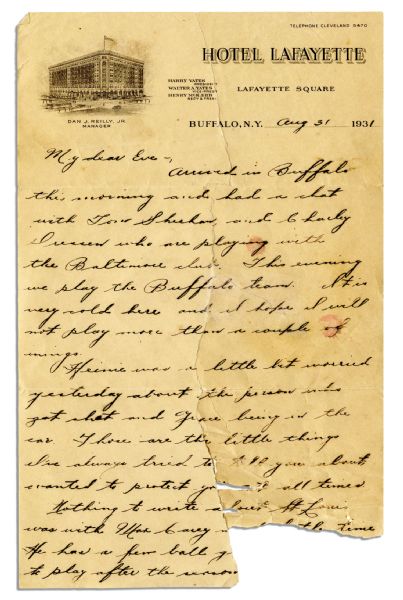 TELEPHONE CLEVELAND 5470
HOTEL LAFAYETTE
HARRY YATES
PRESIDENT
WALTER A. YATES
VICE PREST.
HENRY
SECY & TREAS.
LAFAYETTE SQUARE
DAN J. REILLY, JR.
MANAGER
BUFFALO, N.Y. Aug 31 1931
My dear Eve -,
Arrived in Buffalo
this morning and had a chat
with Tom Sheehan, and Charley
Dressen who are playing with
the Baltimore club. This evening
we play the Buffalo team. It is
very cold here and I hope I will
not play more than a couple of
innings.
Heinie was a little bit worried
yesterday about the person who
got shot and Grace being in the
car. Those are the little things
I've always tried to tell you about
wanted to protect you at all times
Nothing to write about St Louis
was with Max Carey the time
He has a few ball g
to play after the season